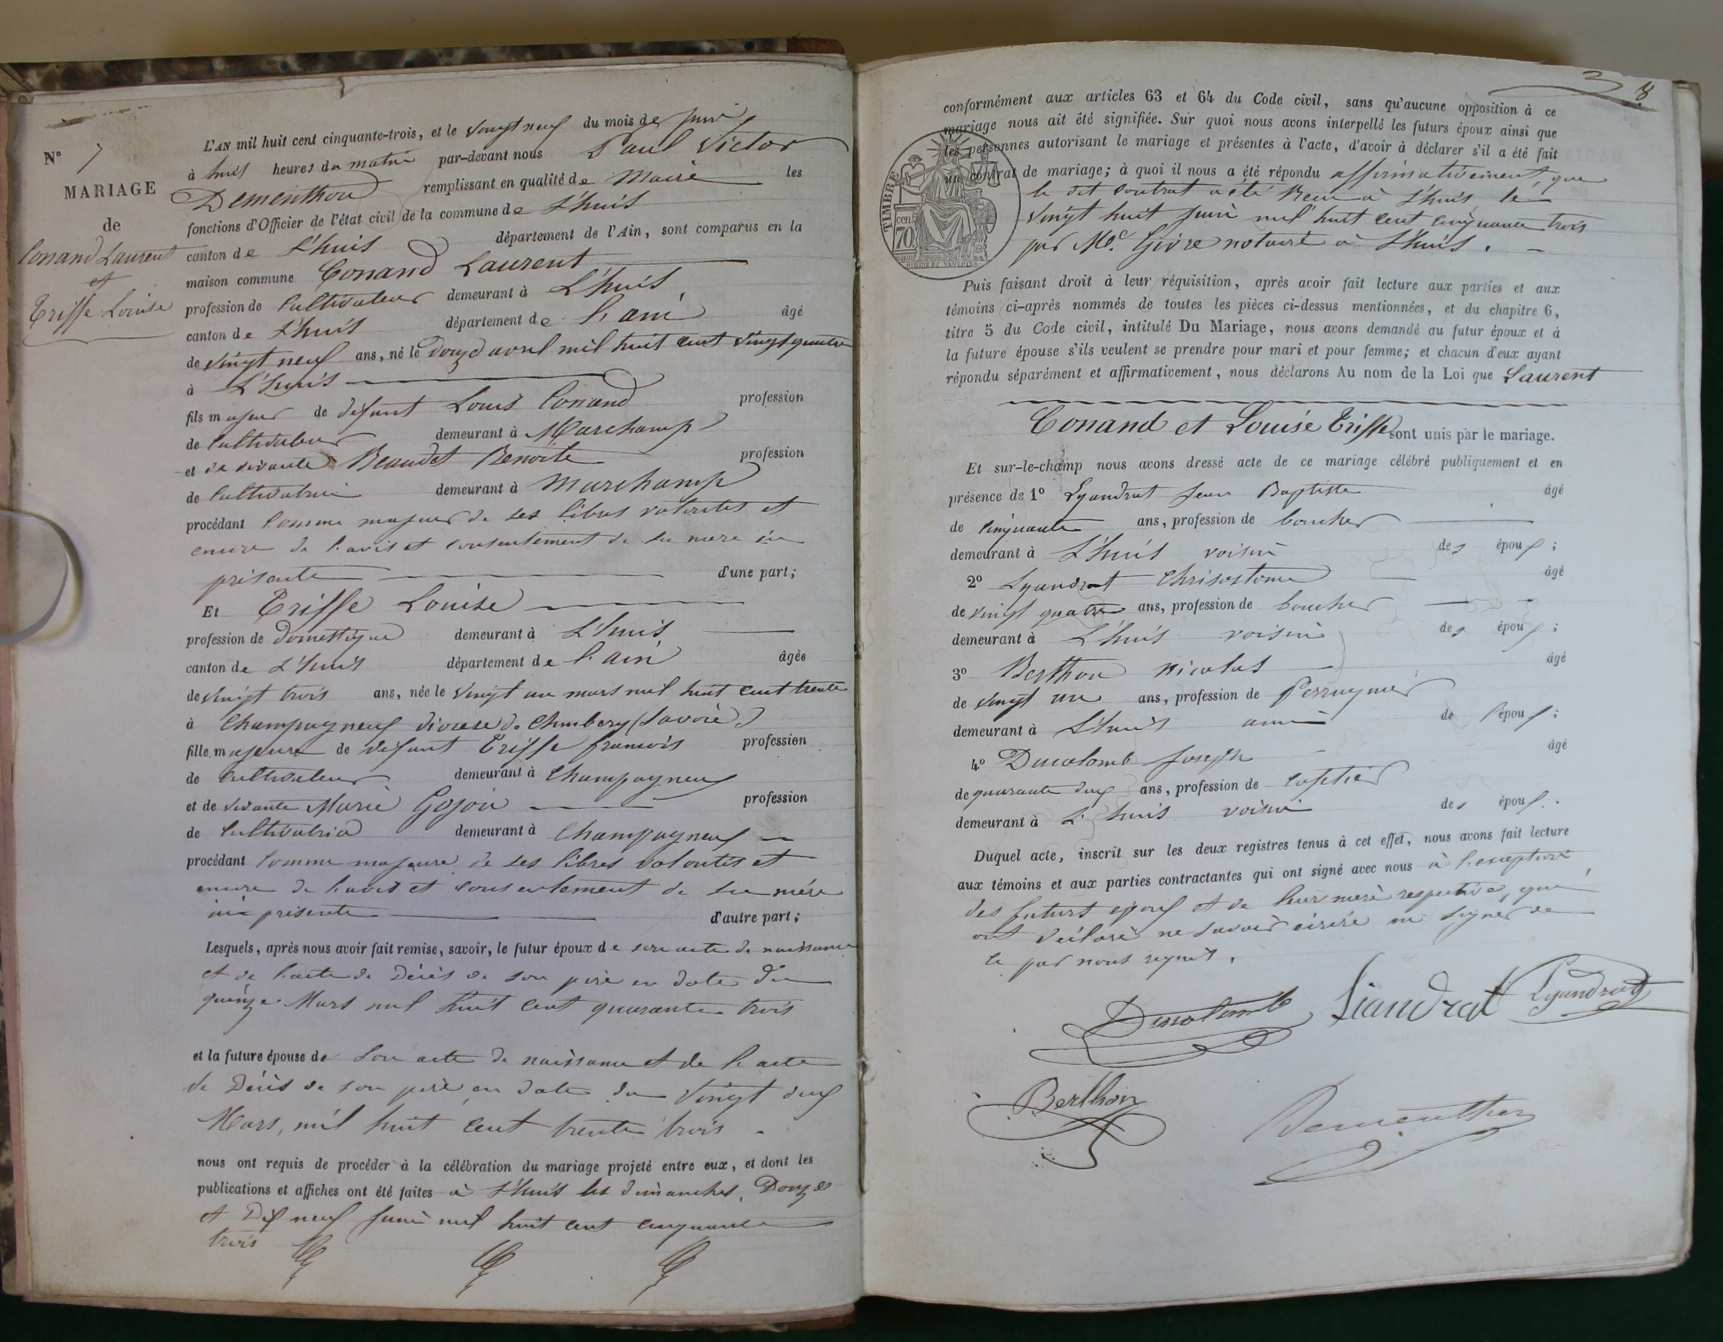 N° 7
MARIAGE
de
Conand Laurent
et
Triffe Louise
L'AN mil huit cent cinquante-trois, et le vingt neuf du mois de juin
à huit heures du matin par-devant nous Paul Victor
Dementhon remplissant en qualité de Maire les
fonctions d'Officier de l'état civil de la commune de L'huis
canton de L'huis département de l'Ain, sont comparus en la
maison commune Conand Laurent
profession de Cultivateur demeurant à L'huis
canton de L'huis département de L'ain âgé
de vingt neuf ans, né le douze avril mil huit cent vingt quatre
à L'huis
fils majeur de défunt Louis Conand profession
de Cultivateur demeurant à Marchamp
et de vivante Beaudet Benoite profession
de Cultivatrice demeurant à Marchamp
procédant comme majeur de ses libres volontés et
encore de l'avis et consentement de sa mere ici
présente d'une part;
Et Triffe Louise
profession de domestique demeurant à L'huis
canton de L'huis département de l'ain âgée
de vingt trois ans, née le vingt un mars mil huit cent trente
à Champagneux diocese de Chambery (Savoie)
fille majeure de défunt Triffe francois profession
de Cultivateur demeurant à Champagneux
et de vivante Marie Gojon profession
de Cultivatrice demeurant à Champagneux
procédant comme majeure de ses libres volontés et
encore de l'avis et consentement de sa mére
ici présente d'autre part;
Lesquels, après nous avoir fait remise, savoir, le futur époux de son acte de naissance
et de l'acte de Décès de son père en date du
quinze Mars mil huit cent quarante trois
et la future épouse de son acte de naissance et de l'acte
de Décès de son père en date du vingt deux
Mars, mil huit cent trente trois.
nous ont requis de procéder à la célébration du mariage projeté entre eux, et dont les
publications et affiches ont été faites à L'huis les dimanches, Douze
et Dix neuf juin mil huit cent cinquante
trois
8
conformément aux articles 63 et 64 du Code civil, sans qu'aucune opposition à ce
mariage nous ait été signifiée. Sur quoi nous avons interpellé les futurs époux ainsi que
les personnes autorisant le mariage et présentes à l'acte, d'avoir à déclarer s'il a été fait
un contrat de mariage; à quoi il nous a été répondu affirmativement, que
le dit contrat a été Recu à L'huis, le
vingt huit juin mil huit cent cinquante trois
par Me. Givre notaire à L'huis.
TIMBRE
cen
70
Puis faisant droit à leur réquisition, après avoir fait lecture aux parties et aux
témoins ci-après nommés de toutes les pièces ci-dessus mentionnées, et du chapitre 6,
titre 5 du Code civil, intitulé Du Mariage, nous avons demandé au futur époux et à
la future épouse s'ils veulent se prendre pour mari et pour femme; et chacun d'eux ayant
répondu séparément et affirmativement, nous déclarons Au nom de la Loi que Laurent
Conand et Louise Triffe sont unis par le mariage.
Et sur-le-champ nous avons dressé acte de ce mariage célébré publiquement et en
présence de 1° Lyandrat Jean Baptiste âgé
de Cinquante ans, profession de boucher
demeurant à L'huis voisin des époux;
2° Lyandrat Chrisostome âgé
de vingt quatre ans, profession de boucher
demeurant à L'huis voisin des époux;
3° Berthon Nicolas âgé
de vingt un ans, profession de Perruquier
demeurant à L'huis ami de l'époux;
4° Ducolomb Joseph âgé
de quarante deux ans, profession de cafetier
demeurant à L'huis voisin des époux.
Duquel acte, inscrit sur les deux registres tenus à cet effet, nous avons fait lecture
aux témoins et aux parties contractantes qui ont signé avec nous à l'exception
des futurs époux et de leur mere respective, qui
ont déclaré ne savoir écrire ni signer de
ce par nous requis.
Ducolomb Liandrat Lyandrat
Berthon Dementhon